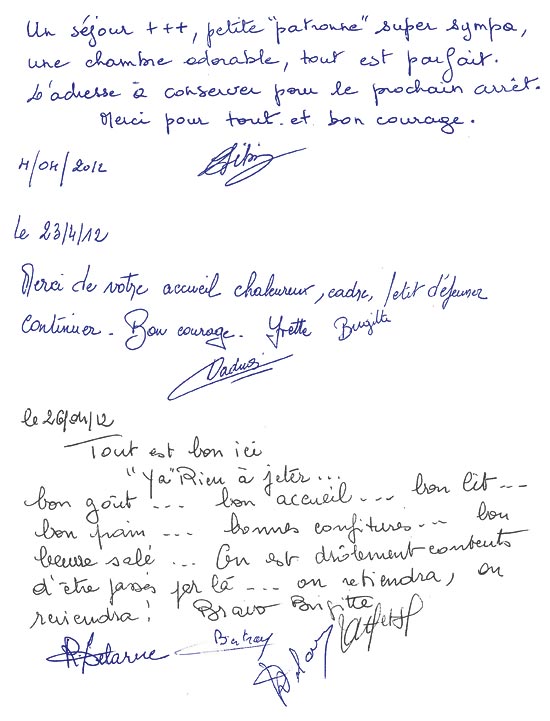 Un séjour +++, petite "patronne" super sympa,
une chambre adorable, tout est parfait.
L'adresse à conserver pour le prochain arrêt.
Merci pour tout et bon courage.
4/04/2012
le 23/4/12
Merci de votre accueil chaleureux, cadre, petit déjeuner
continuer. Bon courage. Yvette Brigitte
le 26/04/12
Tout est bon ici
"Ya" Rien à jeter...
bon goût ... bon accueil ... bon lit ...
bon pain ... bonnes confitures ... bon
beurre salé ... On est drôlement contents
d'être passés par là ... on retiendra, on
reviendra! Bravo Brigitte
R. Delarue